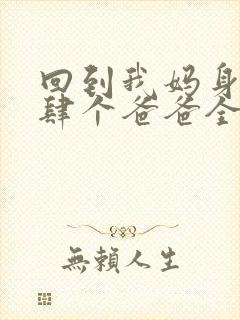 回到我妈身
肆个爸爸全
無賴人生